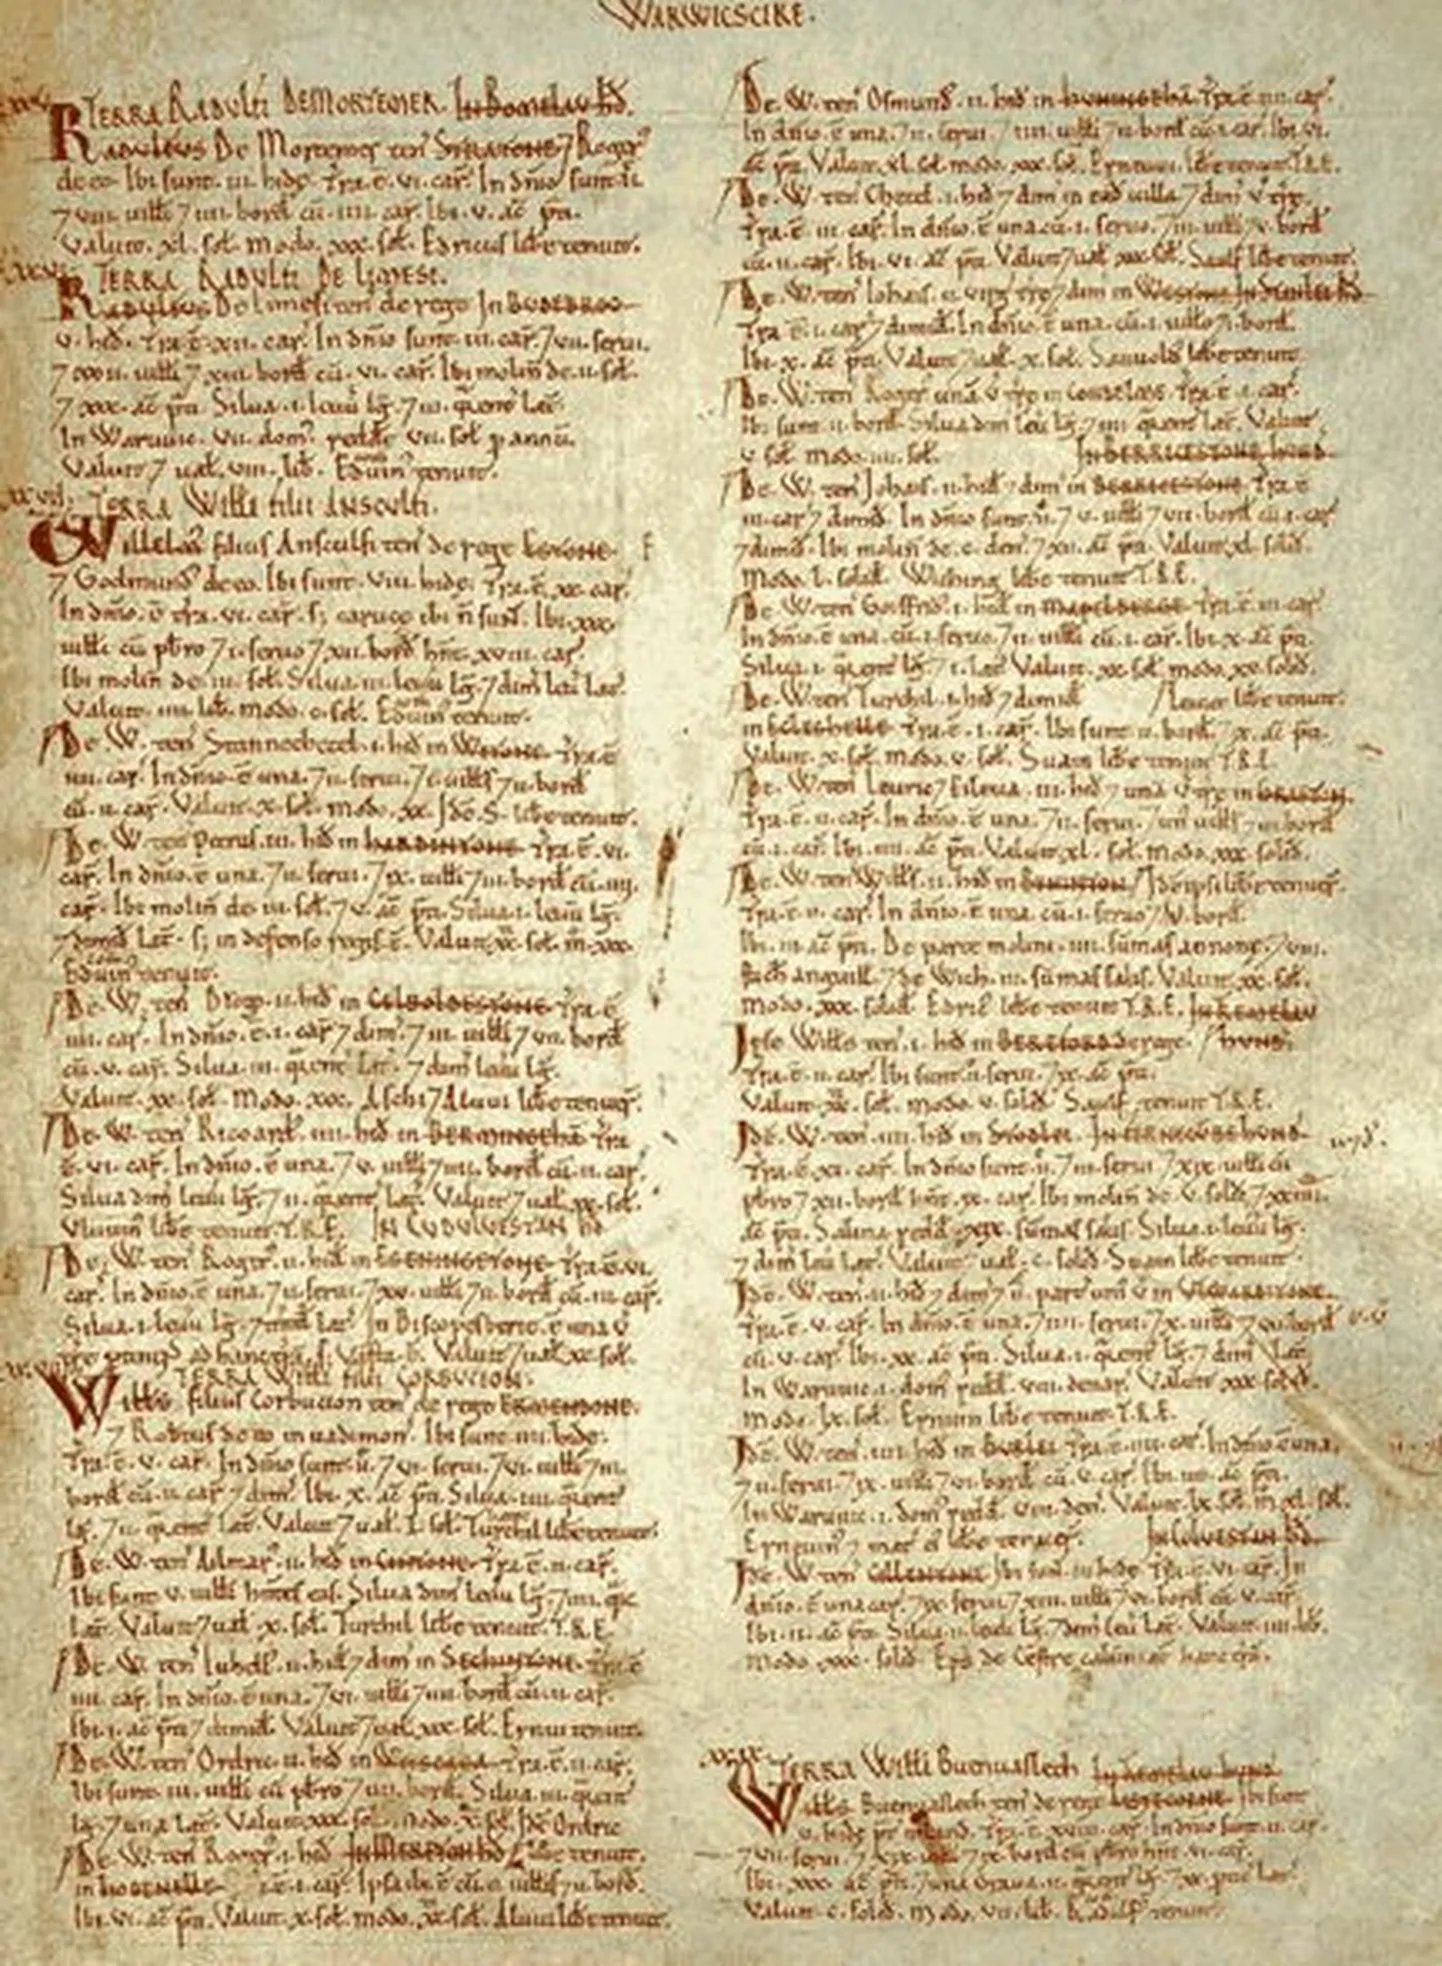 WARWICSCIRE.
TERRA RADULFI DE MORTEMER. In Bomelau Hd.
Radulfus De Mortemer ten Stratone 7 Roger
de eo. Ibi sunt .iii. hidę. Tra .e. vi. car. In dnio sunt .ii.
7 viii. uilli 7 iiii. bord cu .iiii. car. Ibi .v. ac pti.
Valuit. xl. sol. modo. xxx. sol. Edricus libe tenuit.
TERRA RADULFI DE LIMESI.
Radulfus De limesi ten de rege In BUDEBROC
v. hid. Tra .e. xii. car. In dnio sunt .iii. car. 7 vii. serui.
7 uilli 7 xiii. bord cu .vi. car. Ibi molin de .ii. sol.
7 xxx. ac pti. Silua .i. leuu lg. 7 iii. qrent lat.
In Waruuic. vii. dom redde vii. sol p annu.
Valuit 7 ual. viii. lib. Eduin tenuit.
TERRA Willi filii ANSCULFI.
Willelm filius Ansculfi ten de rege ESTONE.
7 Godmund de eo. Ibi sunt. viii. hidę. Tra .e. xx. car.
In dnio .e. tra. vi. car. s; caruce ibi n sunt. Ibi. xxx.
uilli cu pbro 7 i. seruo 7 xii. bord hnt. xviii. car.
Ibi molin de .iii. sol. Silua .iii. leuu lg. 7 dim leuu lat.
Valuit. iiii. lib. modo. c. sol. Eduin tenuit.
De .W. ten Stannechetel .i. hid in WITONE. Tra .e.
iiii. car. In dnio .e. una. 7 ii. serui. 7 i. uills 7 ii. bord
cu .ii. car. Valuit. x. sol. modo. xx. Ide .S. libe tenuit.
De .W. ten Petrus .iii. hid in HARDINTONE. Tra .e. vi.
car. In dnio .e. una. 7 ii. serui. 7 ix. uilli 7 iii. bord cu .iiii.
car. Ibi molin de .iii. sol. 7 v. ac pti. Silua .i. leuu lg.
7 dimid lat. s; in defenso regis .e. Valuit. xx. sol. m. xxx.
Eduin tenuit.
De .W. ten Drogo .ii. hid in CELBOLDESTONE. Tra .e.
iiii. car. In dnio .e. i. car 7 dim. 7 iii. uilli 7 vii. bord
cu .v. car. Silua .iii. qrent lat. 7 dim leuu lg.
Valuit. xx. sol. modo. xxx. Aschi 7 Aluui libe tenuer.
De .W. ten Ricoard. iiii. hid in BERMINGEHA. Tra
.e. vi. car. In dnio .e. una. 7 v. uilli 7 iiii. bord cu .ii. car.
Silua dim leuu lg. 7 ii. qrent lat. Valuit 7 ual. xx. sol.
Vluuin libe tenuit T.R.E. IN CUDULVESTAN HD
De .W. ten Roger .ii. hid in ESENINGETONE. Tra .e. vi.
car. In dnio .e. una. 7 ii. serui. 7 xv. uilli 7 ii. bord cu .iii. car.
Silua .i. leuu lg. 7 dimid lat. In Biscopesberie .e. una v
tre ptines ad hanc tra. s; Vasta .e. Valuit 7 ual. xx. sol.
TERRA Willi filii CORBUCION.
Wills filius Corbucion ten de rege ERMENDONE.
7 Robtus de eo in uadimon. Ibi sunt .iiii. hidę.
Tra .e. v. car. In dnio sunt .ii. 7 vi. serui. 7 vi. uilli 7 iii.
bord cu .ii. car 7 dim. Ibi. x. ac pti. Silua .iiii. qrent
lg. 7 ii. qrent lat. Valuit 7 ual. l. sol. Turchil libe tenuit.
De .W. ten Ailmar .ii. hid in CINTONE. Tra .e. ii. car.
Ibi sunt v. uilli hntes eas. Silua dim leuu lg. 7 iiii. qre
lat. Valuit 7 ual. x. sol. Turchil libe tenuit. T.R.E.
De .W. ten Iuhell .ii. hid 7 dim in SECHINTONE. Tra .e.
iiii. car. In dnio .e. una. 7 vi. uilli 7 iiii. bord cu .ii. car.
Ibi .i. ac pti 7 dimid. Valuit 7 ual. xxx. sol. Ernui tenuit.
De .W. ten Ordric .ii. hid in Tra .e. ii. car.
Ibi sunt .iii. uilli cu pbro 7 iiii. bord. Silua .iii. qrent
lg. 7 una lat. Valuit. xxx. sol. modo. x. sol. Ide Ordric
De .W. ten Roger .i. hid In MERETON HD libe tenuit.
in e. i. car. Ipsa ibi .e. cu .i. uillo 7 ii. bord.
Ibi. vi. ac pti. Valuit. x. sol. modo. xx. sol. Aluui libe tenuit.
De .W. ten Osmund .ii. hid in HUNNINGEHA. Tra .e. iiii. car.
In dnio .e. una. 7 ii. serui. 7 iiii. uilli 7 ii. bord cu .i. car. Ibi vi.
ac pti. Valuit. xl. sol. modo. xxx. sol. Ernuin libe tenuit. T.R.E.
De .W. ten Chetel .i. hid 7 dim in ead uilla 7 dim v tre.
Tra .e. iii. car. In dnio .e. una cu .i. seruo. 7 iii. uilli 7 v. bord
cu .ii. car. Ibi. vi. ac pti. Valuit 7 ual. xxx. sol. Saulf libe tenuit.
De .W. ten Iohais .ii. virg tre 7 dim in WESTONE. In Stanlei HD
Tra .e. i. car 7 dimid. In dnio .e. una. cu .i. uillo 7 i. bord.
Ibi. x. ac pti. Valuit 7 ual. x. sol. Sauuold libe tenuit.
De .W. ten Roger una v tre in Contelow. Tra .e. i. car.
Ibi sunt .ii. bord. Silua dim leu lg. 7 iiii. qrent lat. Valuit
v. sol. modo. iii. sol. IN BERRICESTONE HUND.
De .W. ten Johais .ii. hid 7 dim in BERRICESTONE. Tra .e.
iii. car 7 dimid. In dnio sunt .ii. 7 v. uilli 7 vii. bord cu .i. car
7 dimid. Ibi molin de .c. den. 7 xii. ac pti. Valuit. xl. solid.
Modo. l. solid. Wichinz libe tenuit T.R.E.
De .W. ten Goisfrid .i. hid in MAPELBERGE. Tra .e. iii. car.
In dnio .e. una. cu .i. seruo. 7 ii. uilli cu .i. car. Ibi. x. ac pti.
Silua .i. qrent lg. 7 i. lat. Valuit. xx. sol. modo. xv. solid.
De .W. ten Turchil .i. hid 7 dimid libe tenuit.
in ECLESHELLE. Tra .e. i. car. Ibi sunt .ii. bord. 7 x. ac pti.
Valuit. x. sol. modo. v. sol. Suain libe tenuit T.R.E.
De .W. ten Leuric 7 Eileua .iii. hid 7 una v tre in GRASTON.
Tra .e. ii. car. In dnio .e. una. 7 ii. serui. 7 uills 7 iii. bord
cu .i. car. Ibi. iiii. ac pti. Valuit. xl. sol. modo. xxx. solid.
De .W. ten Wills. ii. hid in BENINTON. Idē ipsi libe tenuer.
Tra .e. ii. car. In dnio .e. una cu .i. seruo 7 v. bord.
Ibi. iii. ac pti. De parte molini .iiii. sumas annonę. 7 viii.
stich anguill. 7 de Wich. iii. sumas salis. Valuit. xx. sol.
modo. xxx. solid. Edric libe tenuit T.R.E. IN REMELAU
Ipse Wills ten .i. hid in BEREFORD de rege. HUND.
Tra .e. ii. car. Ibi sunt .ii. serui. 7 x. ac pti.
Valuit. xx. sol. modo. v. solid. Saulf tenuit T.R.E.
Ide .W. ten .iiii. hid in STODLEI. IN FERNECUBE HUND.
Tra .e. xi. car. In dnio sunt .ii. 7 iii. serui 7 xix. uilli cu
pbro 7 xii. bord hnt. ix. car. Ibi molin de .v. solid. 7 xxiiii.
ac pti. Salina redd. xix. sumas salis. Silua .i. leuu lg.
7 dim leu lat. Valuit 7 ual. c. solid. Suain libe tenuit
Ide .W. ten .ii. hid 7 dim 7 parte uni v in
Tra .e. v. car. In dnio .e. una. 7 iiii. serui. 7 x. uilli 7 vii. bord
cu .v. car. Ibi. xx. ac pti. Silua .i. qrent lg. 7 dim lat.
In Waruuic .i. dom redd. viii. denar. Valuit. xxx. solid.
modo. lx. sol. Ernuin libe tenuit T.R.E.
Ide .W. ten .iiii. hid in BURLEI. Tra .e. iiii. car. In dnio .e. una.
7 ii. serui. 7 ix. uilli 7 vi. bord cu .v. car. Ibi. ac pti.
In Waruuic .i. dom redd. viii. den. Valuit. lx. sol. m. xl. sol.
Ernuin 7 mat ei libe tenuer. IN COLVESTAN HD.
Ide .W. ten CILLENTONE. Ibi sunt .iii. hidę. Tra .e. vi. car. In
dnio .e. una car. 7 ix. serui 7 xiii. uilli 7 vi. bord cu .v. car.
Ibi .ii. ac pti. Silua .ii. leuu lg. 7 dim leu lat. Valuit. iiii. lib.
modo. xxx. solid. Eps de Cestre calumniat hanc tra.
TERRA Willi Buenuasleth In Remelau Hund.
Wills Buenuasleth ten de rege LESTEONE. Ibi sunt
v. hidę Tra .e. xviii. car. In dnio sunt .ii. car.
7 vii. serui. 7 xix. uilli 7 ix. bord cu pbro hnt. vi. car.
Ibi. xxx. ac pti. 7 una Graua .ii. qrent lg. 7 xx. ptic lat.
Valuit. c. solid. modo. vii. lib. Radulf tenuit.